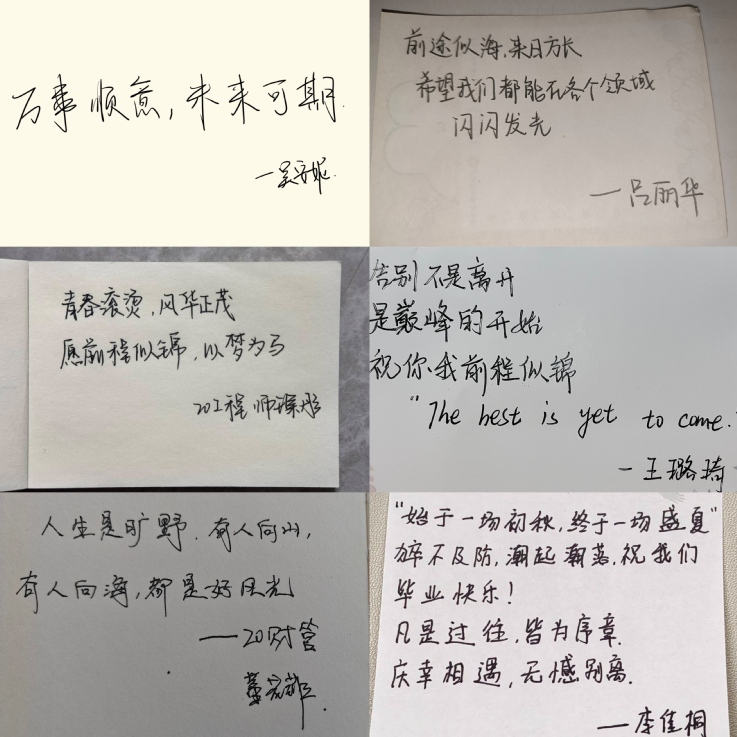 万事顺意，未来可期.
一吴安妮.
前途似海，来日方长
希望我们都能在各个领域
闪闪发光
一吕丽华
青春滚烫，风华正茂
愿前程似锦，以梦为马
20工程 师璨彤
告别不是离开
是巅峰的开始
祝你我前程似锦
“The best is yet to come.”
一王璐琦
人生是旷野，有人向山，
有人向海，都是好风光
——20财管
董
“始于一场初秋，终于一场盛夏”
猝不及防，潮起潮落，祝我们
毕业快乐！
凡是过往，皆为序章.
庆幸相遇，无憾别离.
——李佳桐